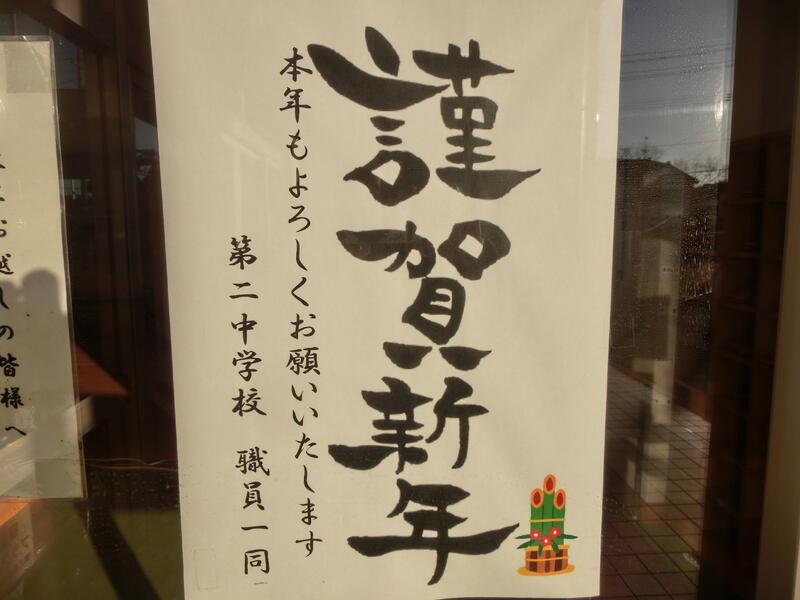 謹賀新年
本年もよろしくお願いいたします
第二中学校 職員一同
お越しの皆様へ